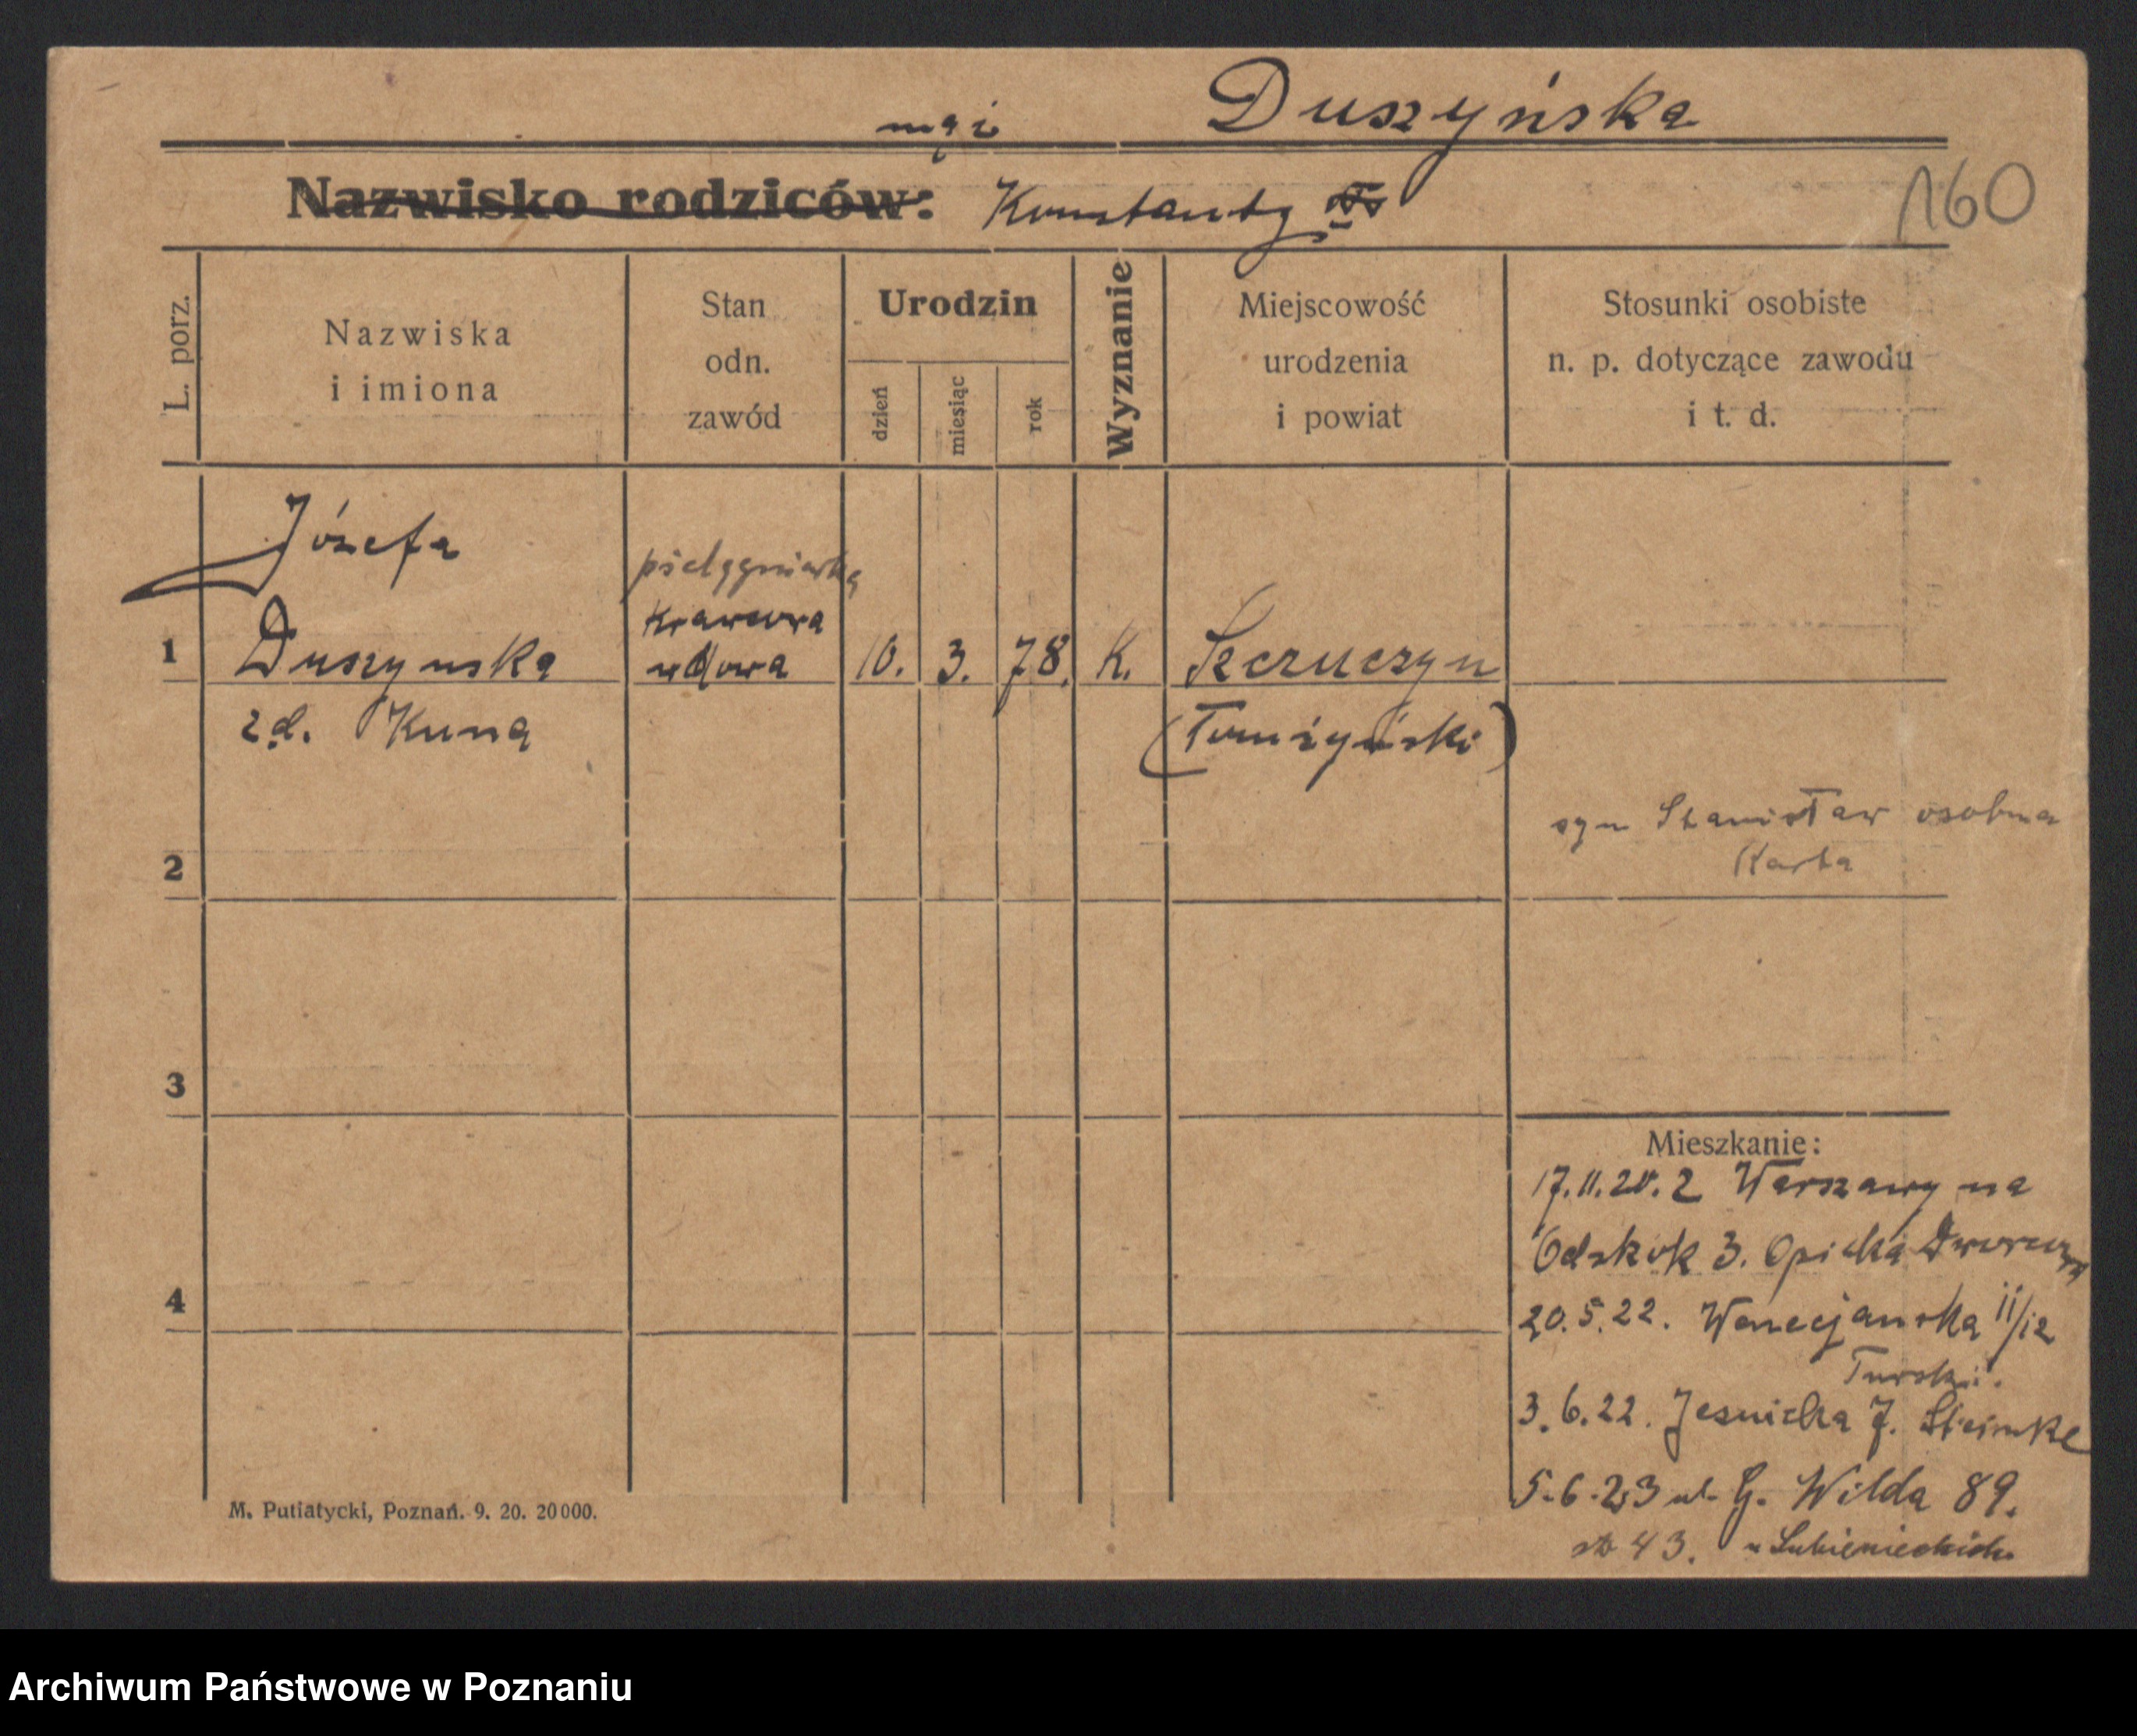 mąż Duszyńska
Nazwisko rodziców: Konstanty
160
L. porz.
Nazwiska
i imiona
Stan
odn.
zawód
Urodzin
dzień
miesiąc
rok
Wyznanie
Miejscowość
urodzenia
i powiat
Stosunki osobiste
n. p. dotyczące zawodu
i t. d.
Józefa
pielęgniarka
Krawcowa
1 Duszynska wdowa 10. 3. 78. K. Szczuczyn
zd. Kuna (Łomżyński)
syn Stanisław osobna
Karta
2
3
Mieszkanie:
17.11.20. z Warszawy na
Odskok 3. Opieka Dworcowa
4
20.5.22. Wenecjanska 11/12
Turski.
3.6.22. Jesnicka 7. Steimke
5.6.23 ul. G. Wilda 89.
43. u Lubienieckich
M. Putiatycki, Poznań. 9. 20. 20000.
Archiwum Państwowe w Poznaniu